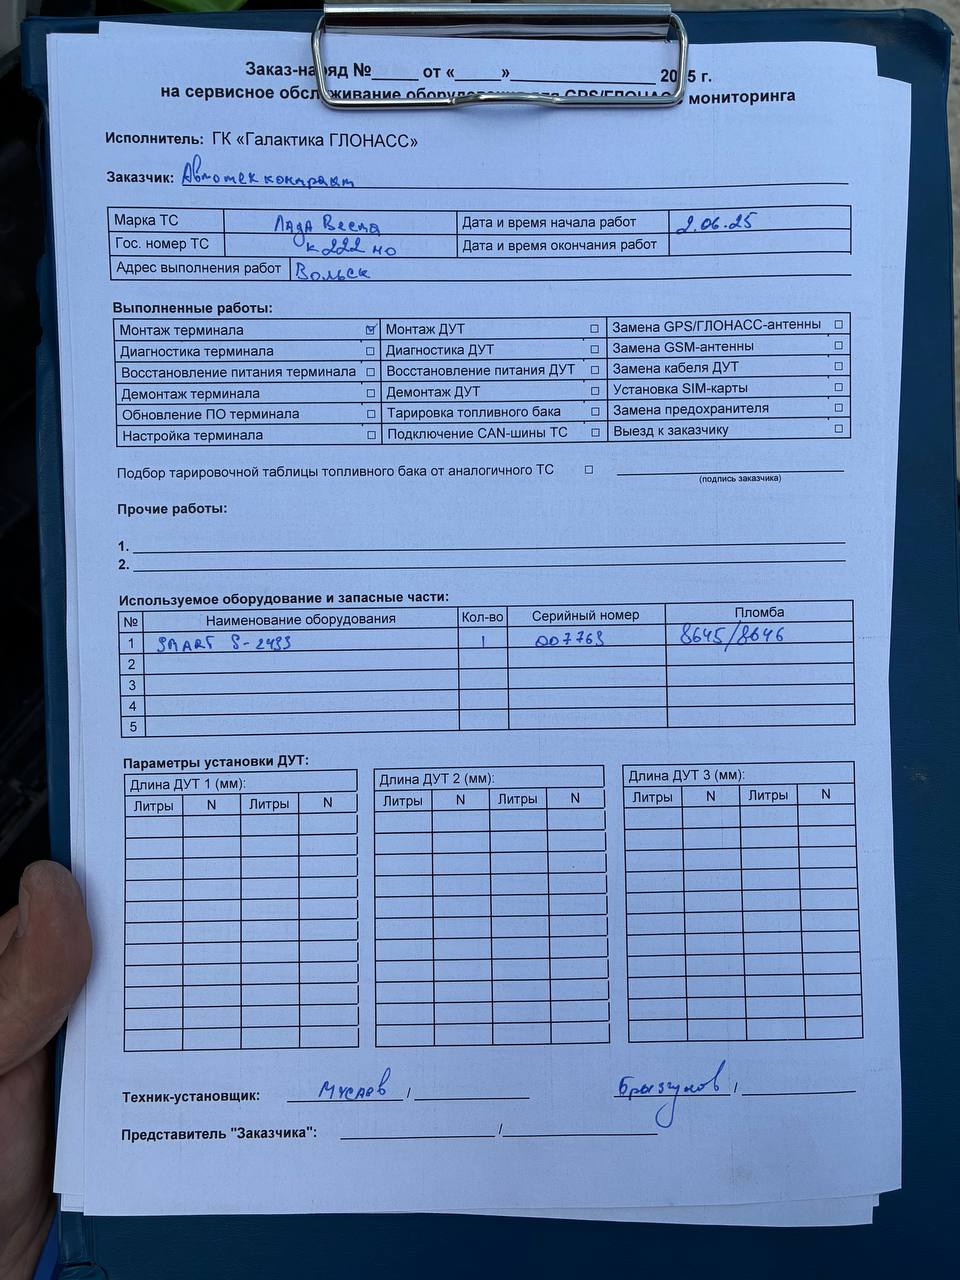 Заказ-наряд №_____ от «_____»__________________ 2025 г.
на сервисное обслуживание оборудования для GPS/ГЛОНАСС мониторинга
Исполнитель: ГК «Галактика ГЛОНАСС»
Заказчик: Автотекконтракт
Марка ТС Лада Веста Дата и время начала работ 2.06.25
Гос. номер ТС К222 но Дата и время окончания работ
Адрес выполнения работ Вольск
Выполненные работы:
Монтаж терминала ☑ Монтаж ДУТ ☐ Замена GPS/ГЛОНАСС-антенны ☐
Диагностика терминала ☐ Диагностика ДУТ ☐ Замена GSM-антенны ☐
Восстановление питания терминала ☐ Восстановление питания ДУТ ☐ Замена кабеля ДУТ ☐
Демонтаж терминала ☐ Демонтаж ДУТ ☐ Установка SIM-карты ☐
Обновление ПО терминала ☐ Тарировка топливного бака ☐ Замена предохранителя ☐
Настройка терминала ☐ Подключение CAN-шины ТС ☐ Выезд к заказчику ☐
Подбор тарировочной таблицы топливного бака от аналогичного ТС ☐
(подпись заказчика)
Прочие работы:
1.
2.
Используемое оборудование и запасные части:
№ Наименование оборудования Кол-во Серийный номер Пломба
1 SMART S-2433 1 007763 8645/8646
2
3
4
5
Параметры установки ДУТ:
Длина ДУТ 1 (мм): Длина ДУТ 2 (мм): Длина ДУТ 3 (мм):
Литры N Литры N Литры N Литры N Литры N Литры N
Техник-установщик: Мусаев / Брызгунов /
Представитель "Заказчика": /